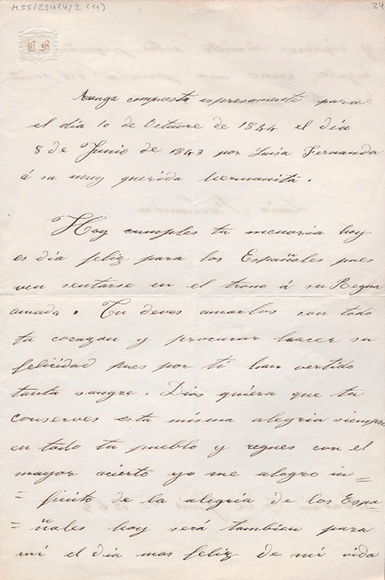 MSS/23434/2 (11)
24
Arenga compuesta espresamente para
el dia 10 de Octucre de 1844 el dia
8 de Junio de 1843 por Luisa Fernanda
á su muy querida hermanita.
Hoy cumples tu menoria hoy
es dia feliz para los Españoles pues
ven sentarse en el trono á su Reyna
amada. Tu deves amarlos con todo
tu corazon y procurar hacer su
felicidad pues por ti han vertido
tanta sangre. Dios quiera que tu
conserves esta misma alegria siempre
en todo tu pueblo y reynes con el
mayor acierto yo me alegro in
= finito de la alegria de los Espa
= ñoles hoy será tambien para
mi el dia mas feliz de mi vida